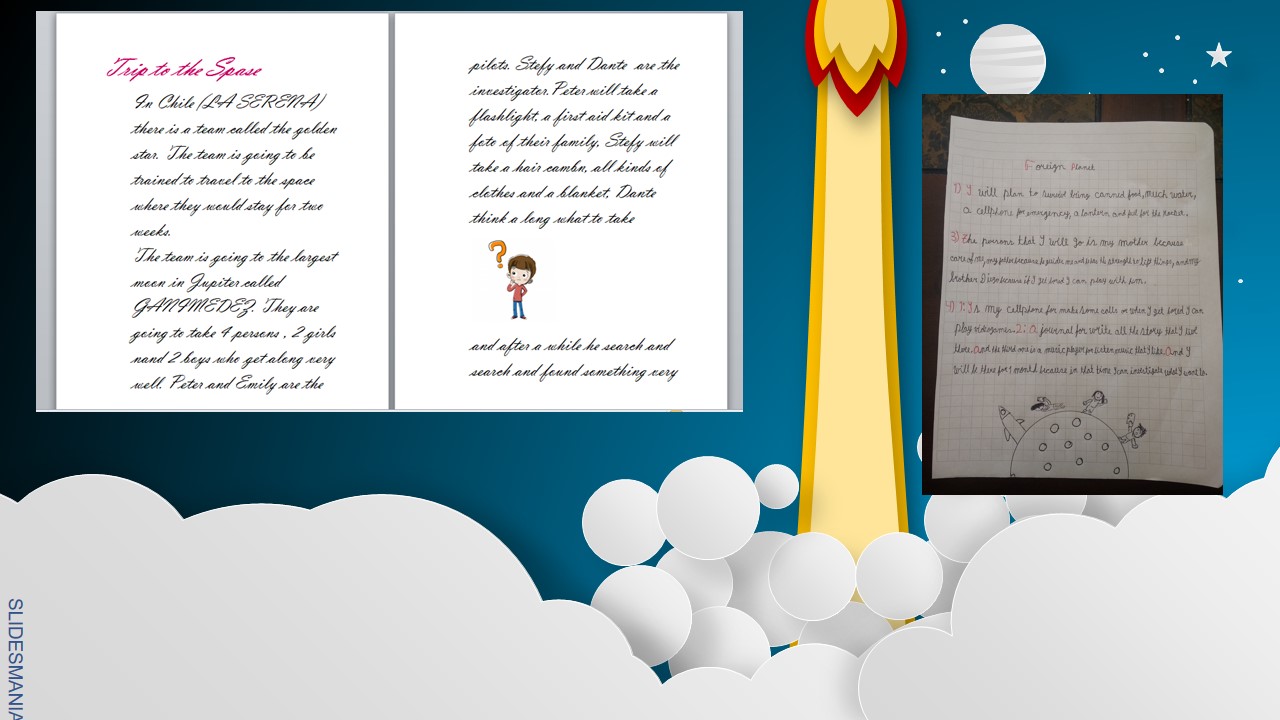 Trip to the Spase
In Chile (LA SERENA)
there is a team called the golden
star. The team is going to be
trained to travel to the space
where they would stay for two
weeks.
The team is going to the largest
moon in Jupiter called
GANIMEDEZ. They are
going to take 4 persons , 2 girls
nand 2 boys who get along very
well. Peter and Emily are the
pilots. Stefy and Dante are the
investigator. Peter will take a
flashlight, a first aid kit and a
foto of their family, Stefy will
take a hair combn, all kinds of
clothes and a blanket, Dante
think a long what to take
?
and after a while he search and
search and found something very
Foreign Planet
1) I will plan to survist bring canned food, much water,
a cellphone for emergency, a lantern and for the
3) The persons that I will go is my mother because
care of me, my father because to guide me and use the strenght to lift things, and my
brother because if I get bored I can play with him.
4) 1: Is my cellphone for make some calls or when I get bored I can
play videogames. 2: a journal for write all the story that I
there. and the third one is a music player for listen music that I like. And I
will be there for 1 month because in that time I can investigate what I want to.
SLIDESMANIA